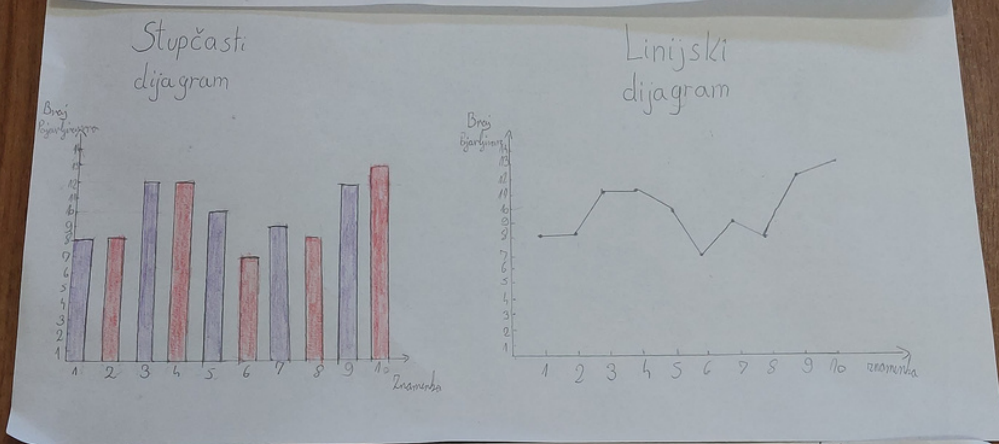 Stupčasti
dijagram
Broj
14
13
12
11
10
9
8
7
6
5
4
3
2
1
1 2 3 4 5 6 7 8 9 10
Znamenka
Linijski
dijagram
Broj
14
13
12
11
10
9
8
7
6
5
4
3
2
1
1 2 3 4 5 6 7 8 9 10 znamenka